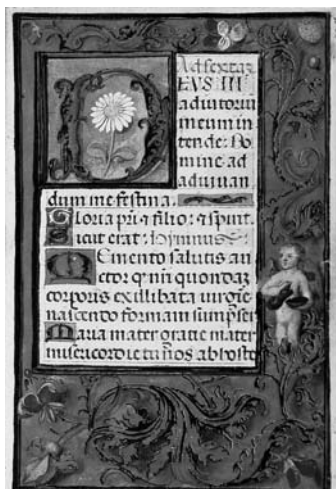 Ad sextaz
DEUS IN
adiutoriū
meum in
tende: Do
mine ad
adiuuan
dum me festina.
Gloria pri & filio: & spiri
Sicut erat. Hymnus
Memento salutis au
ctor q nri quondaz
corporis ex illibata virgie
nascendo formam sumpser
Maria mater gratie mater
misericordie tu nos ab hoste